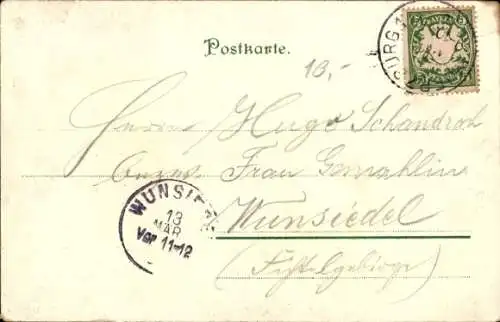 Postkarte.
13,-
BAYERN
BURG 1
Herrn Hugo Schandroch
Frau Gemahlin
Wunsiedel
(Fichtelgebirge)
WUNSIEDEL
13
MÄR
Vor 11-12